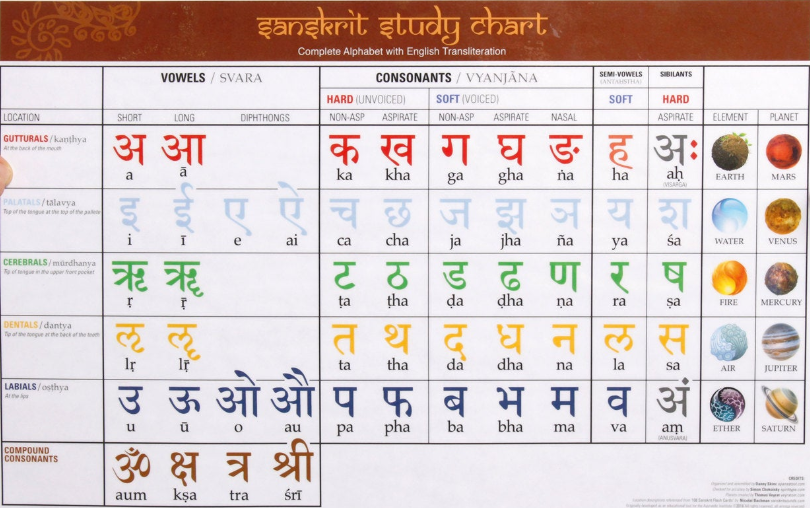 sanskrit study chart
Complete Alphabet with English Transliteration
VOWELS / SVARA
CONSONANTS / VYANJĀNA
SEMI-VOWELS
(ANTAHSTHA)
SIBILANTS
HARD (UNVOICED)
SOFT (VOICED)
SOFT
HARD
LOCATION
SHORT LONG DIPHTHONGS NON-ASP ASPIRATE NON-ASP ASPIRATE NASAL ASPIRATE ELEMENT PLANET
GUTTURALS / kaṇṭhya
At the back of the mouth
अ आ क ख ग घ ङ ह अः
a ā ka kha ga gha ṅa ha aḥ
(VISARGA)
EARTH MARS
PALATALS / tālavya
Top of the tongue at the top of the palate
इ ई ए ऐ च छ ज झ ञ य श
i ī e ai ca cha ja jha ña ya śa
WATER VENUS
CEREBRALS / mūrdhanya
Tip of tongue in the upper front pocket
ऋ ॠ ट ठ ड ढ ण र ष
ṛ ṝ ṭa ṭha ḍa ḍha ṇa ra ṣa
FIRE MERCURY
DENTALS / dantya
Tip of the tongue at the back of the teeth
ऌ ॡ त थ द ध न ल स
lṛ lṝ ta tha da dha na la sa
AIR JUPITER
LABIALS / oṣṭhya
At the lips
उ ऊ ओ औ प फ ब भ म व अं
u ū o au pa pha ba bha ma va aṃ
(ANUSVARA)
ETHER SATURN
COMPOUND
CONSONANTS
ॐ क्ष त्र श्री
aum kṣa tra śrī
CREDITS